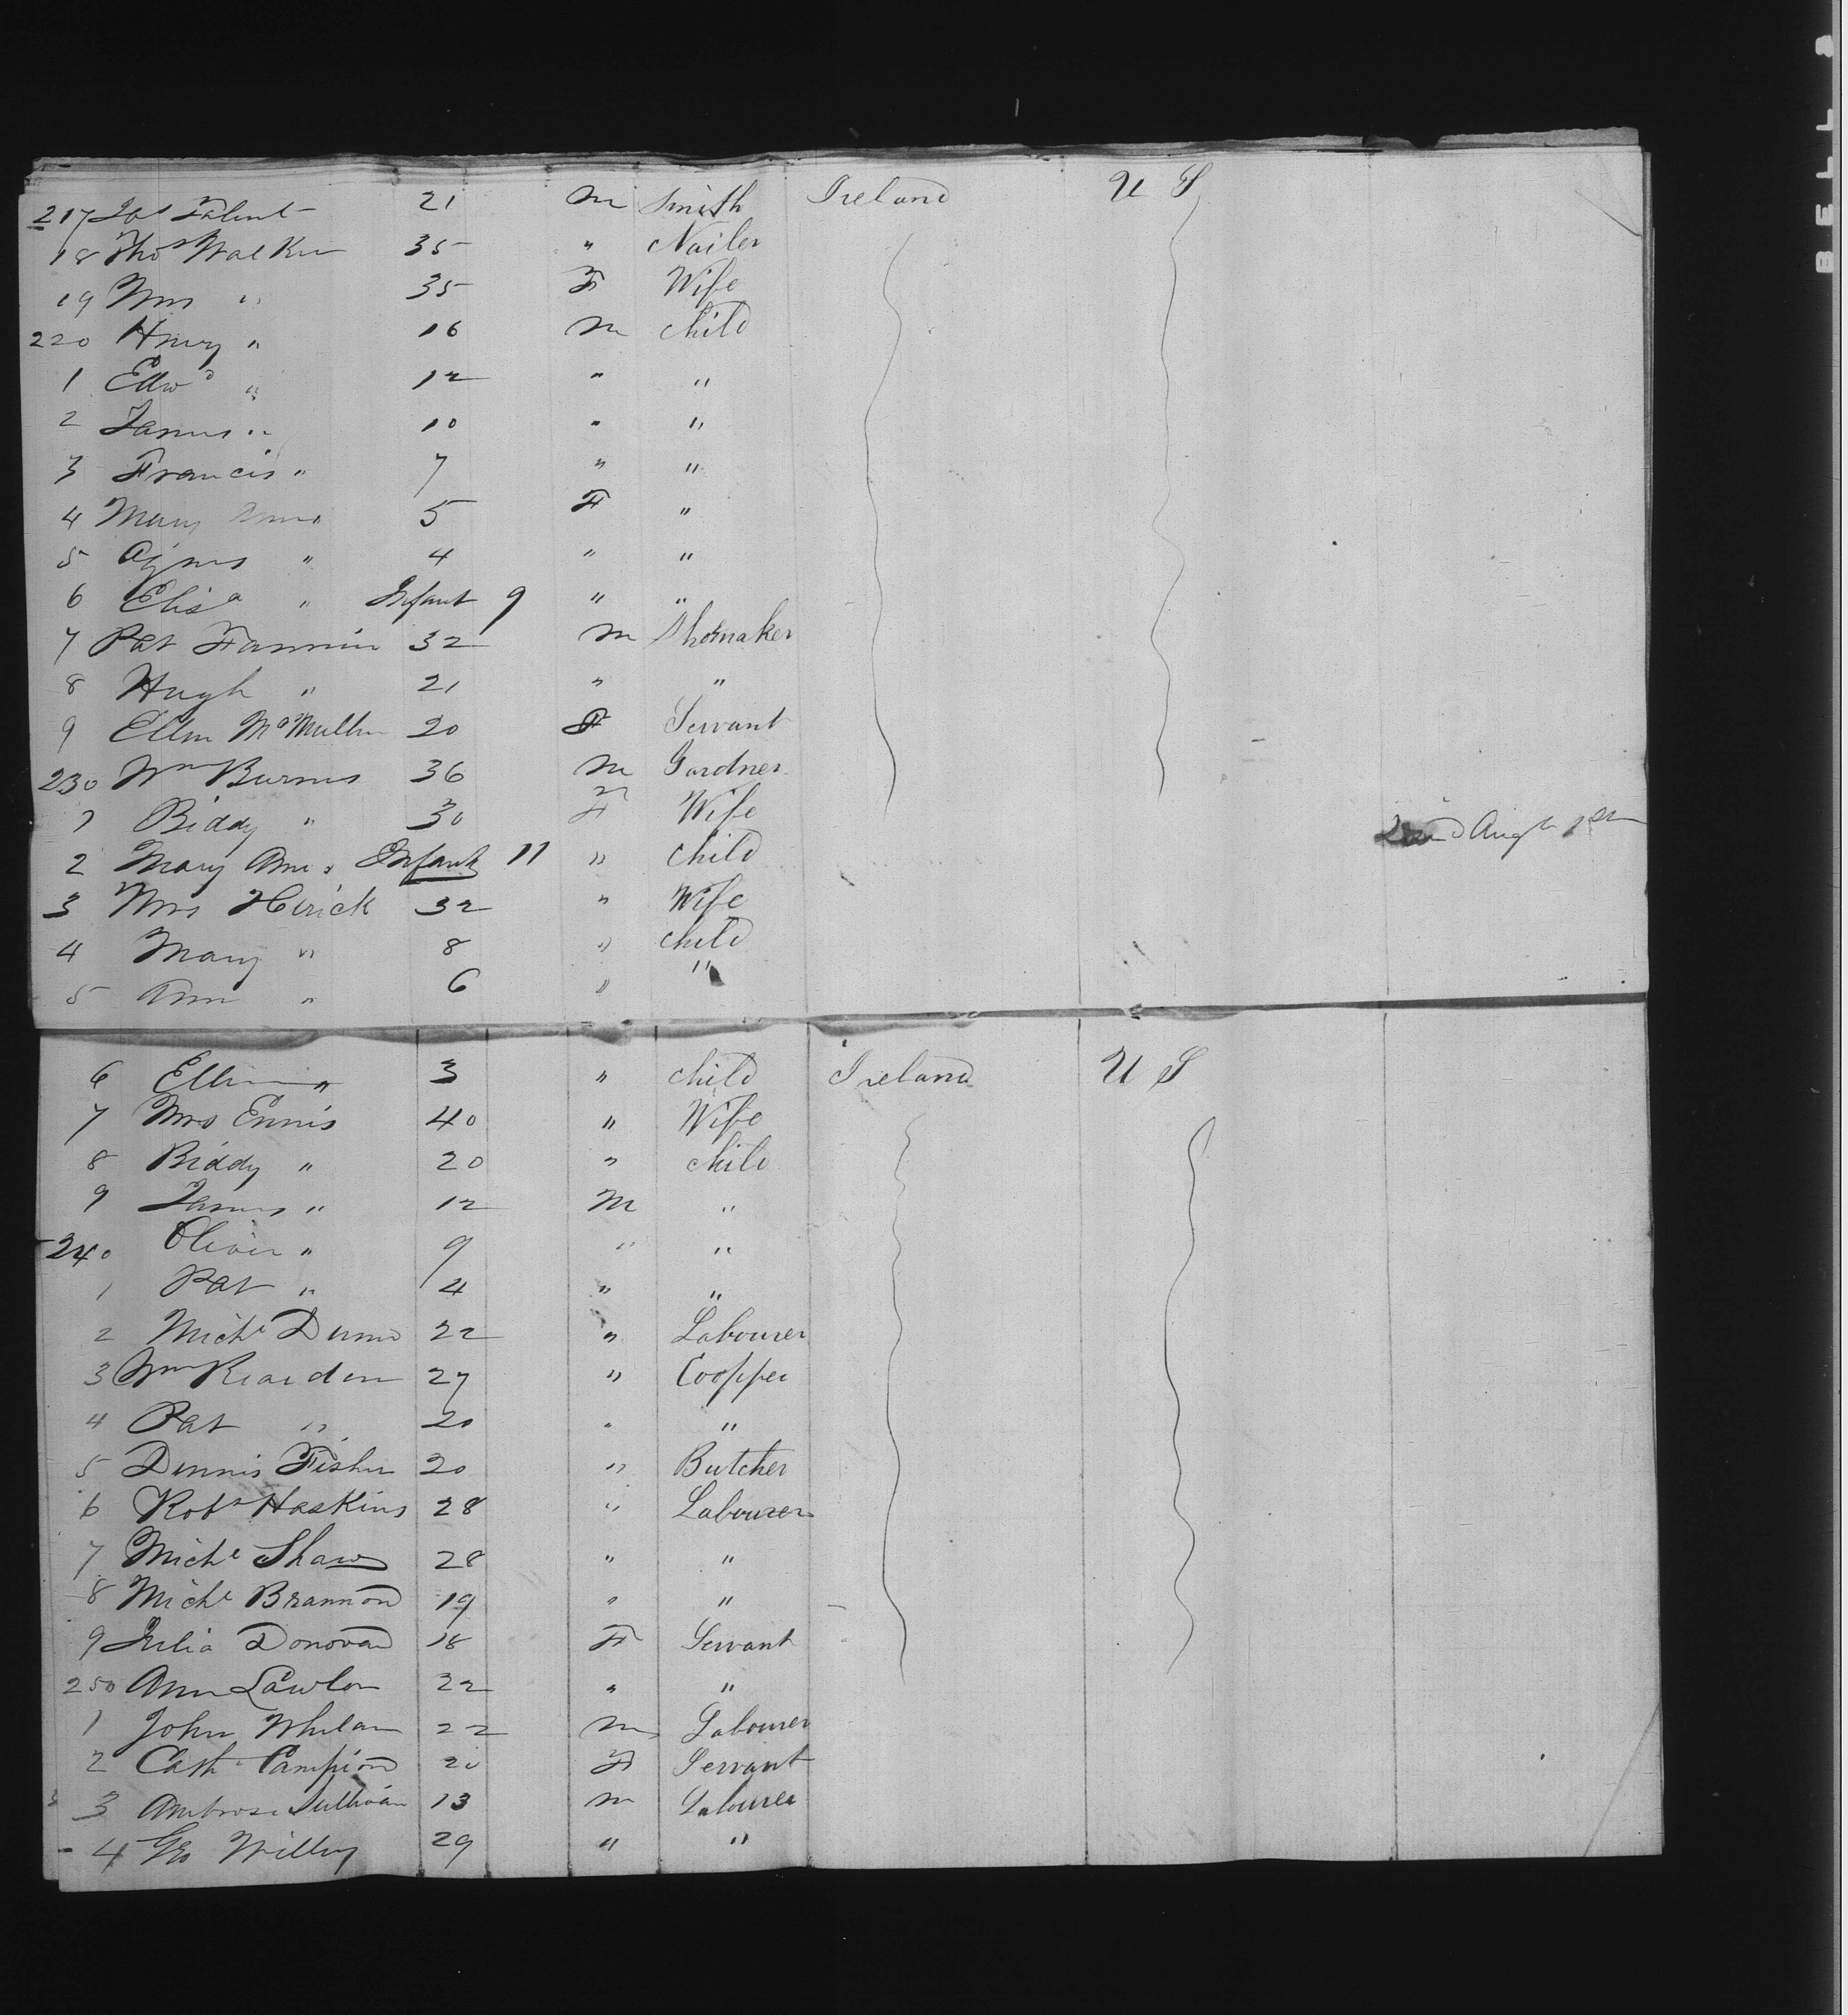 217 Jas Talent 21 m Smith Ireland U S
18 Thos Walker 35 " Nailer
19 Mrs " 35 F Wife
220 Henry " 16 m child
1 Edwd " 12 " "
2 James " 10 " "
3 Francis " 7 " "
4 Mary Ann " 5 F "
5 Agnes " 4 " "
6 Elisa " Infant 9 " "
7 Pat Fannin 32 m Shomaker
8 Hugh " 21 " "
9 Ellen McMullen 20 F Servant
230 Wm Burns 36 m Gardner
1 Biddy " 30 F Wife
2 Mary Ann " Infant 11 " child Died Augt 1st
3 Mrs Herick 32 " Wife
4 Mary " 8 " child
5 Ann " 6 " "
6 Ellen " 3 " child Ireland U S
7 Mrs Ennis 40 " Wife
8 Biddy " 20 " child
9 James " 12 M "
240 Oliver " 9 " "
1 Pat " 4 " "
2 Michl Dunn 22 " Labourer
3 Wm Reardon 27 " Cooper
4 Pat " 20 " "
5 Dennis Fisher 20 " Butcher
6 Robt Haskins 28 " Labourer
7 Michl Shaw 28 " "
8 Michl Brannon 19 " "
9 Julia Donovan 18 F Servant
250 Ann Lawlor 22 " "
1 John Whelan 22 m Labourer
2 Cath Campion 20 F Servant
3 Ambrose Sullivan 13 m Labourer
4 Geo Willey 29 " "
BELL &